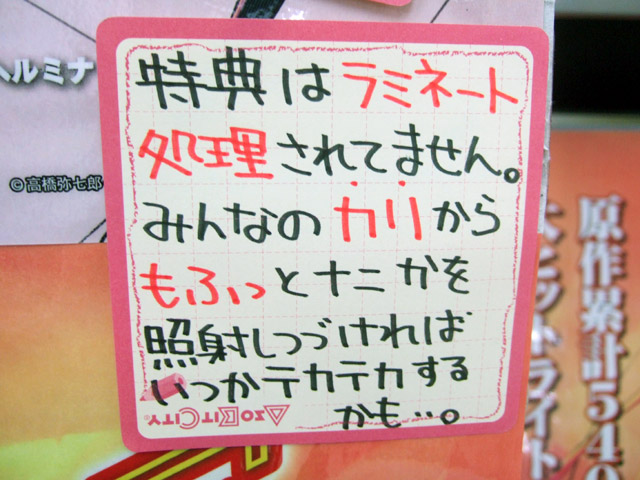 特典はラミネート
処理されてません。
みんなのカリから
もふっとナニかを
照射しつづければ
いっかテカテカする
かも…。
AsoBitCity
ヘルミナ
©高橋弥七郎
原作累計540
大ヒットライト